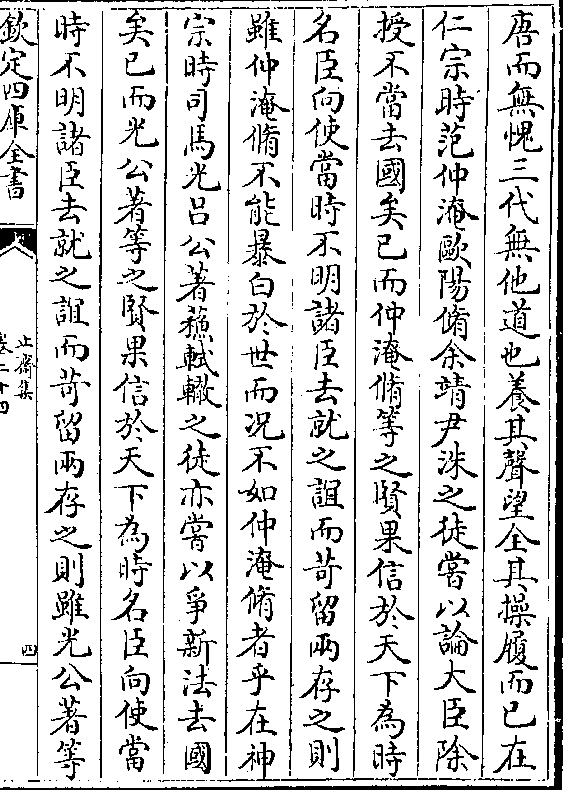 唐而無愧三代無他道也養其聲望全其操履而已在
仁宗時范仲淹歐陽脩余靖尹洙之徒嘗以論大臣除
授不當去國矣已而仲淹脩等之賢果信於天下為時
名臣向使當時不明諸臣去就之誼而苟留兩存之則
雖仲淹脩不能暴白於世而况不如仲淹脩者乎在神
宗時司馬光吕公著蘇軾轍之徒亦嘗以爭新法去國
矣已而光公著等之賢果信於天下為時名臣向使當
時不明諸臣去就之誼而苟留兩存之則雖光公著等
欽定四庫全書
止齋集
卷二十四
四